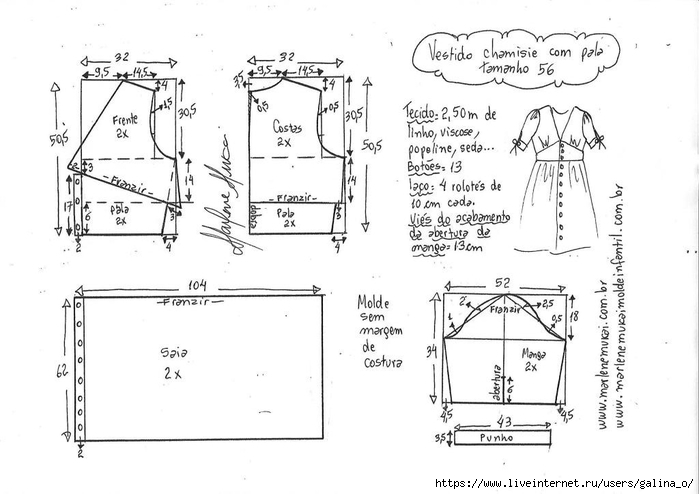 Vestido chamisie com pala
tamanho 56
32
9,5 14,5
4
1,5
30,5
Frente
2x
50,5
2 3
Franzir
14
17
6
Pala
2x
3
2
4
32
9,5 14,5
3,5
4
0,5
0,5
30,5
Costas
2x
50,5
14
Franzir
dobra
Pala
2x
3
4
Marlene Mukai
Tecido= 2,50m de
linho, viscose,
popeline, seda...
Botões= 13
laço= 4 rolotês de
10cm cada.
Viés do acabamento
da abertura da
manga=13cm
104
Franzir
62
Saia
2x
2
Molde
sem
margem
de
costura
52
2 2,5
Franzir
1
0,5
18
34
Manga
2x
abertura
6
4,5 4,5
43
3,5
Punho
www.marlenemukai.com.br
www.marlenemukaimoldeinfantil.com.br
https://www.liveinternet.ru/users/galina_o/